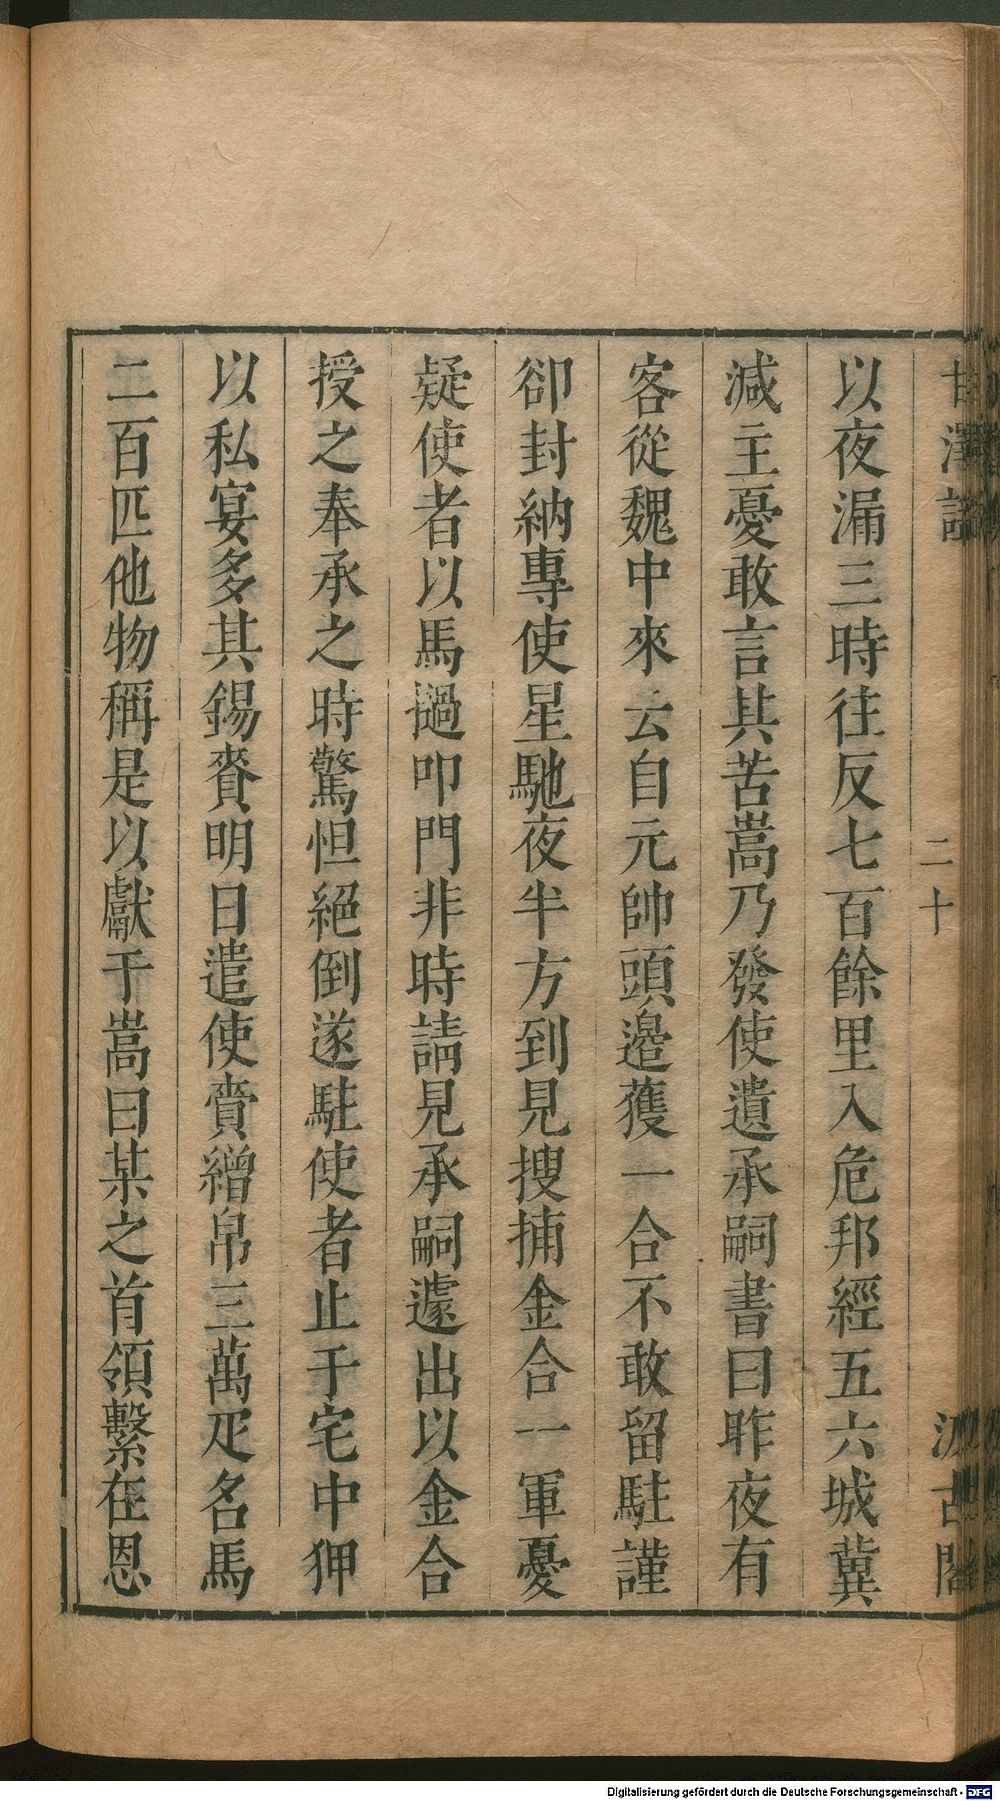 甘澤謠
二十
汲古閣
以夜漏三時往反七百餘里入危邦經五六城冀
減主憂敢言其苦嵩乃發使遺承嗣書曰昨夜有
客從魏中來云自元帥頭邉獲一合不敢留駐謹
卻封納專使星馳夜半方到見搜捕金合一軍憂
疑使者以馬撾叩門非時請見承嗣遽出以金合
授之奉承之時驚怛絕倒遂駐使者止于宅中狎
以私宴多其錫賚明日遣使賫繒帛三萬疋名馬
二百匹他物稱是以獻于嵩曰某之首領繫在恩
Digitalisierung gefördert durch die Deutsche Forschungsgemeinschaft - DFG